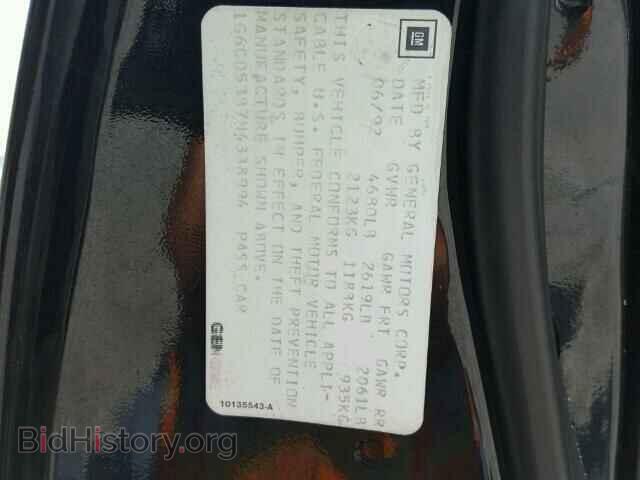 GM
MFD BY GENERAL MOTORS CORP.
DATE GVWR GAWR FRT GAWR RR
06/92 4680LB 2619LB 2061LB
2123KG 1188KG 935KG
THIS VEHICLE CONFORMS TO ALL APPLI-
CABLE U.S. FEDERAL MOTOR VEHICLE
SAFETY, BUMPER, AND THEFT PREVENTION
STANDARDS IN EFFECT ON THE DATE OF
MANUFACTURE SHOWN ABOVE.
PASS CAR
10135543-A
BidHistory.org